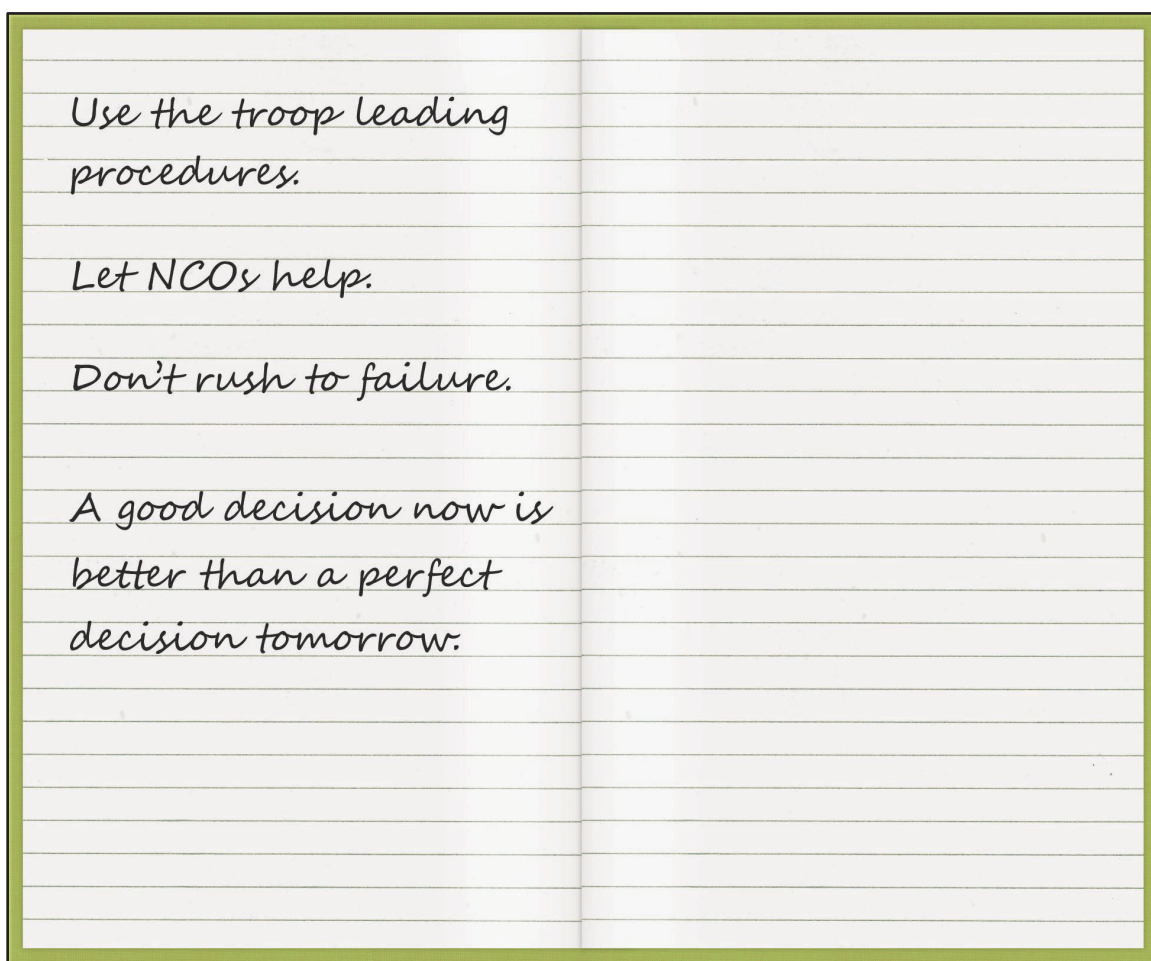 Use the troop leading
procedures.
Let NCOs help.
Don't rush to failure.
A good decision now is
better than a perfect
decision tomorrow.